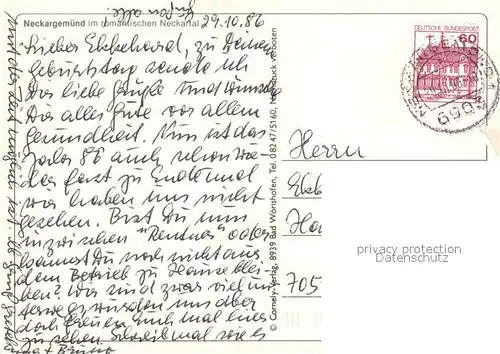 Grüßen alle.
Neckargemünd im romantischen Neckartal
29.10.86
Lieber Ekkehard, zu Deinem
Geburtstag sende ich
Dir liebe Grüße und wünsche
Dir alles Gute vor allem
Gesundheit. Nun ist das
Jahr 86 auch schon wie-
der fast zu Ende und
wir haben uns nicht
gesehen. Bist Du nun
inzwischen "Rentner" oder
kannst Du noch nicht aus
dem Betrieb zu Hause blei-
ben? Wir sind zwar viel un-
terwegs würden uns aber
doch freuen Euch mal hier
zu sehen. Schreib mal wie es
Bruno
© Cornely Verlag, 8939 Bad Wörishofen, Tel. 08247/5160, Nachdruck verboten
DEUTSCHE BUNDESPOST
60
Herrn
Ekk
Ha
705
privacy protection
Datenschutz